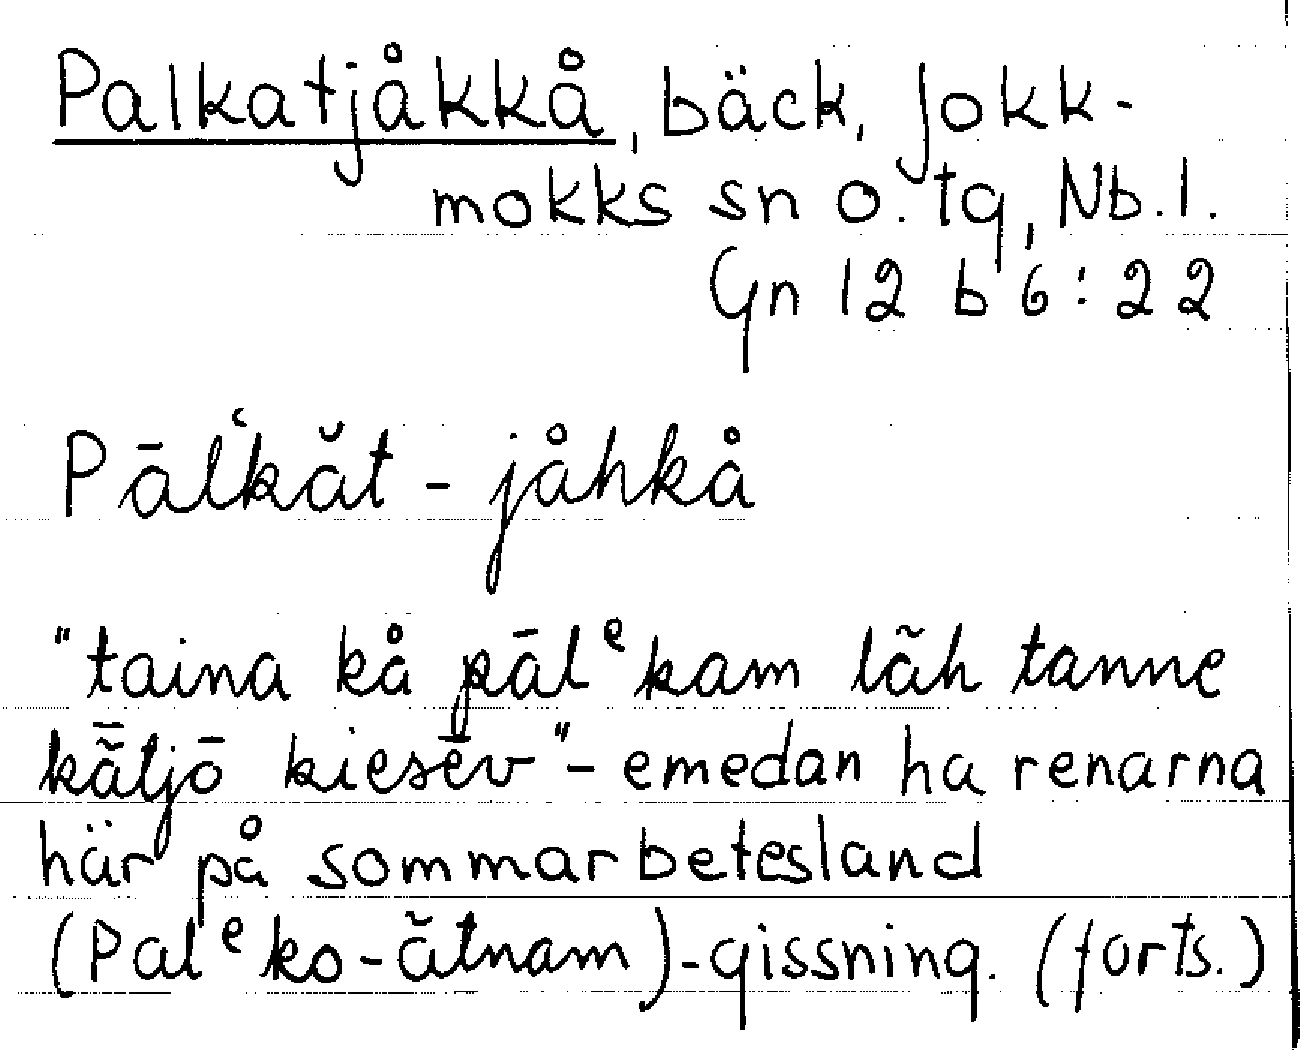 Palkatjåkkå, bäck, Jokk-
mokks sn o. tg, Nb. l.
Gn 12 b 6:22
Pālʻkăt - jåhkå
"taina kå pālᵉkam lãh tanne
kã̄tjō kiesēv" - emedan ha renarna
här på sommarbetesland
(Palᵉko-ătnam) - gissning. (forts.)